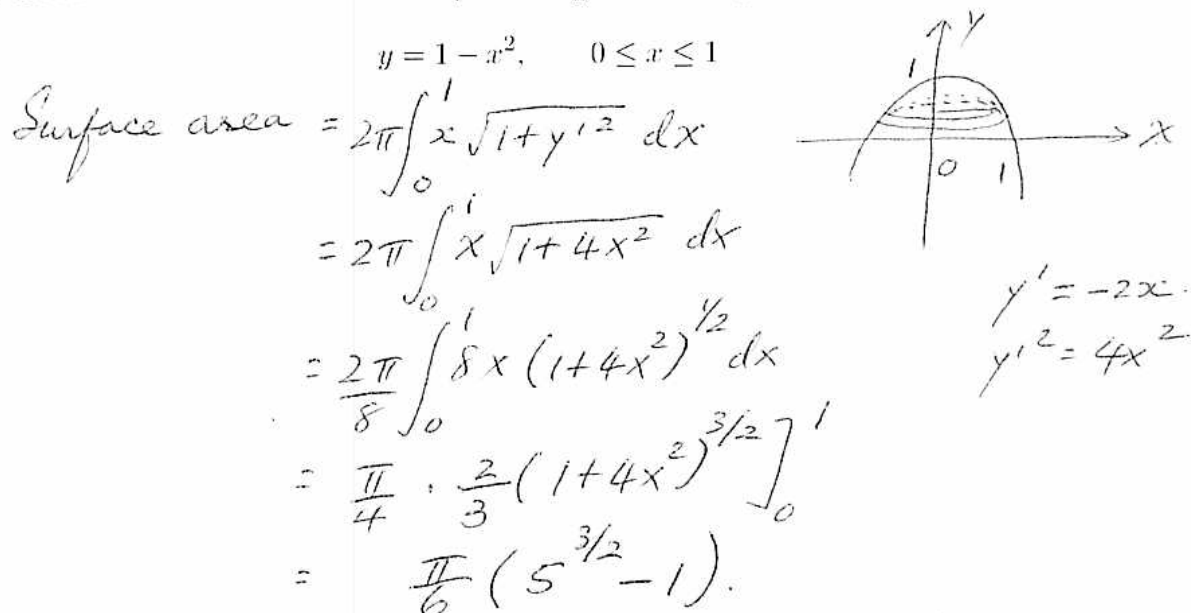 y = 1 − x², 0 ≤ x ≤ 1
Surface area = 2π ∫₀¹ x √(1 + y'²) dx
= 2π ∫₀¹ x √(1 + 4x²) dx
= 2π/8 ∫₀¹ 8x (1 + 4x²)^{1/2} dx
= π/4 · 2/3 (1 + 4x²)^{3/2} ]₀¹
= π/6 (5^{3/2} − 1).
y
1
x
0 1
y' = −2x.
y'² = 4x²